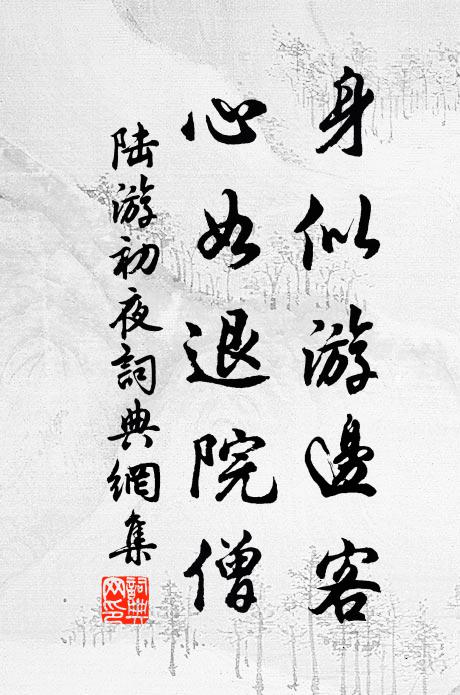 身似游邊客
心如退院僧
陆游初夜詞典網集
詞典网印